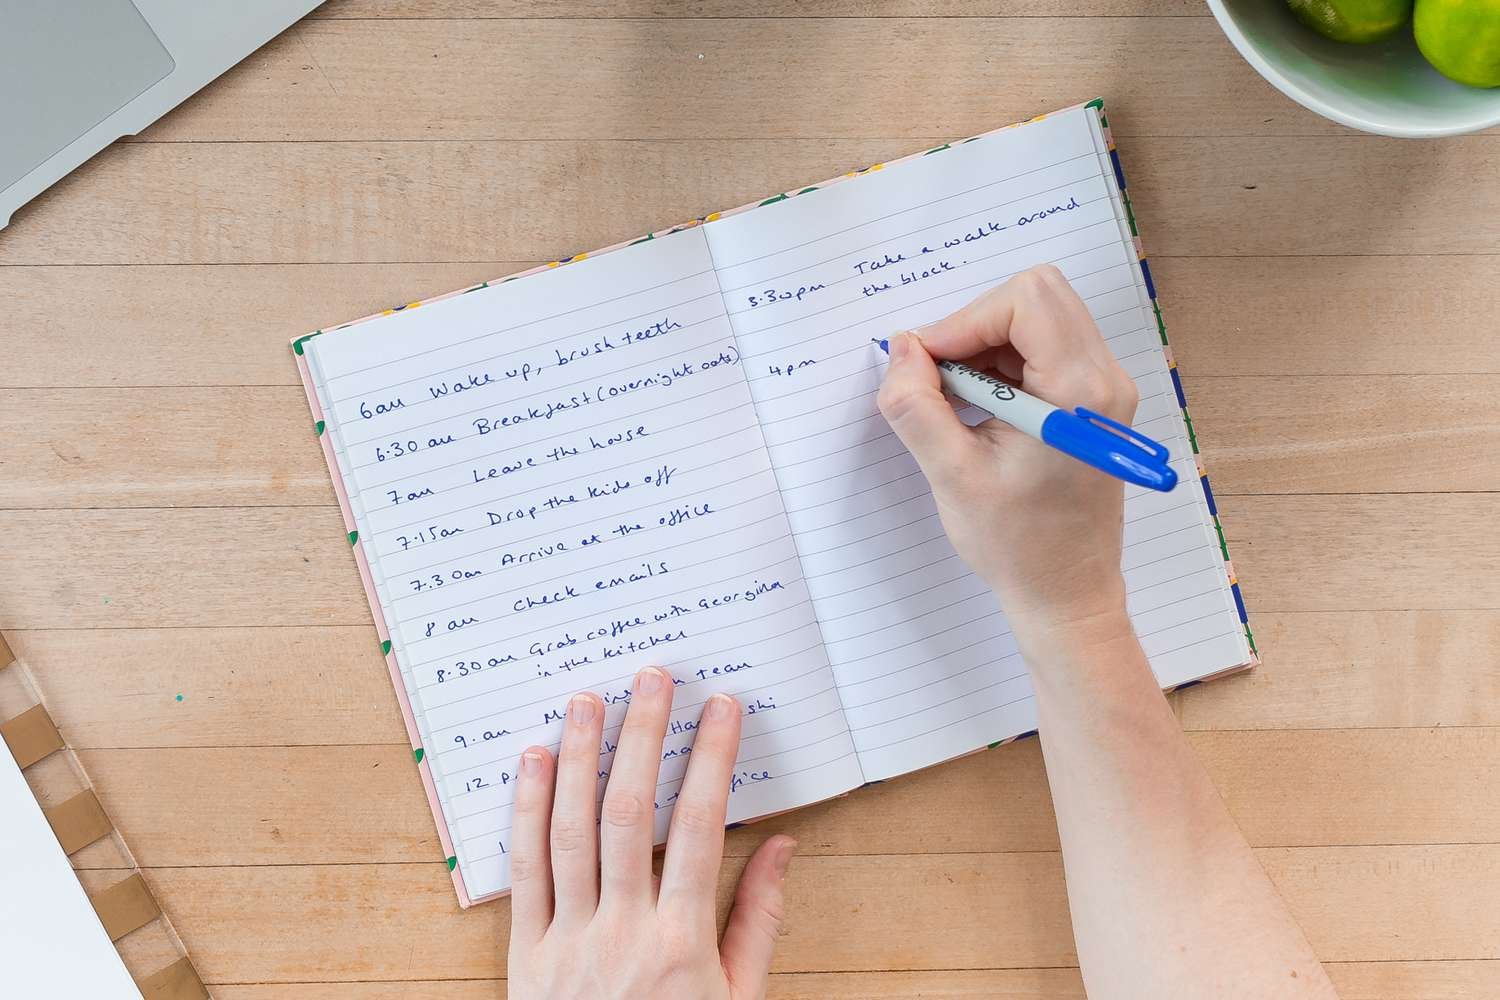 6am Wake up, brush teeth
6.30am Breakfast (overnight oats)
7am Leave the house
7.15am Drop the kids off
7.30am Arrive at the office
8am check emails
8.30am Grab coffee with Georgina
in the kitchen
9.am team
12
3.30pm Take a walk around
the block.
4pm
Sharpie